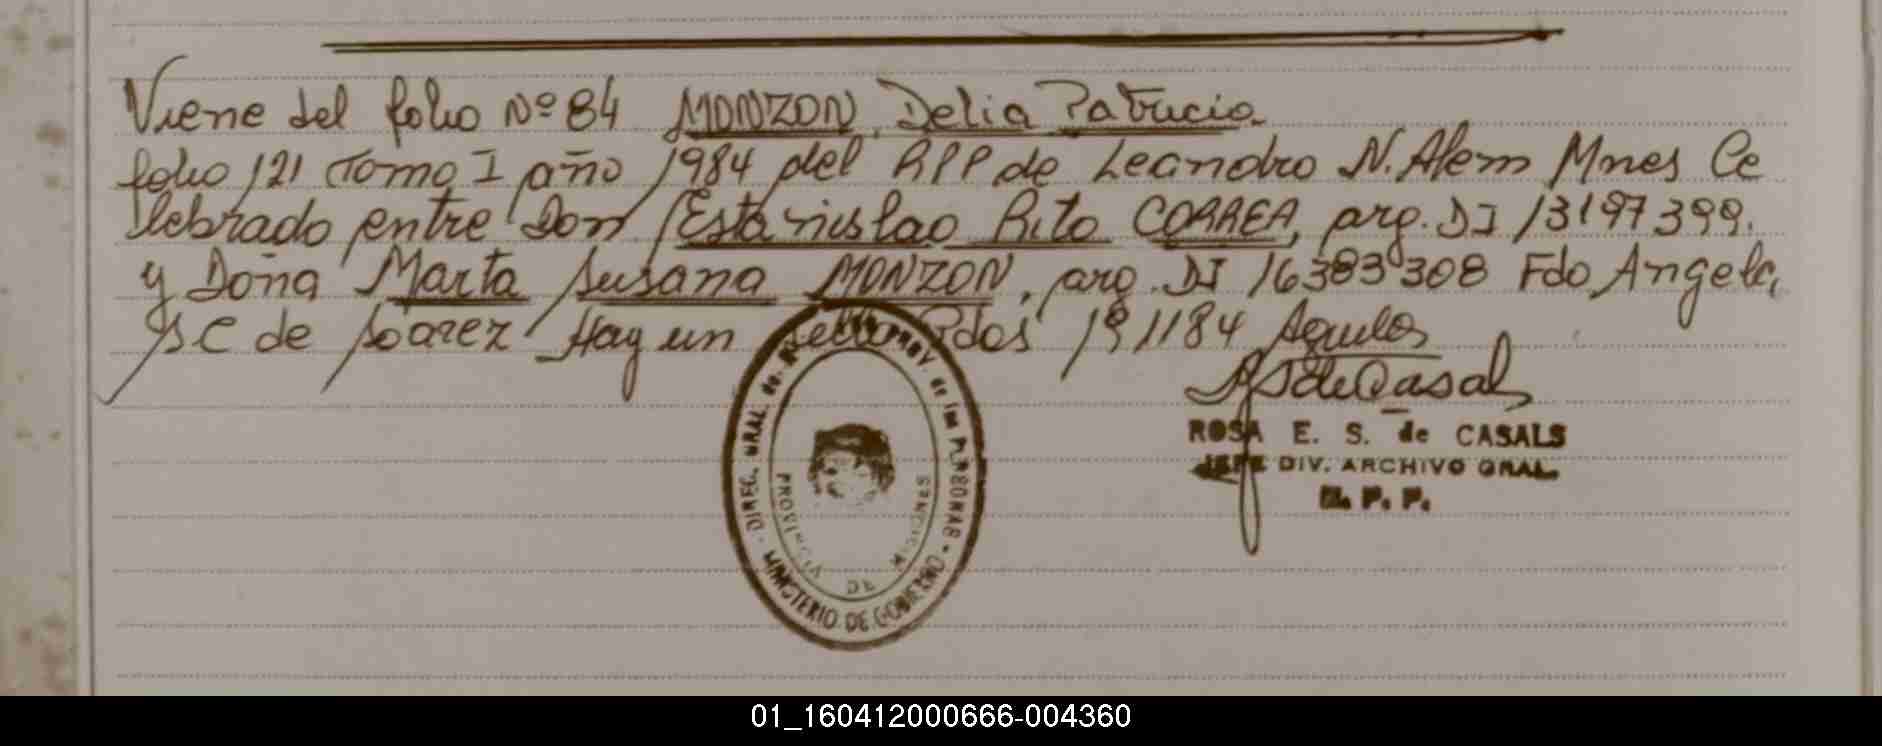 Viene del folio Nº 84 MONZON, Delia Patricia.
folio 121 Tomo I año 1984 del RPP de Leandro N. Alem Mnes Ce
lebrado entre Don Estanislao Rito CORREA, arg. DI 13197399.
y Doña Marta Susana MONZON, arg. DI 16383308 Fdo Angela
SC de Soarez Hay un sello Pdas
ROSA E. S. de CASALS
JEFE DIV. ARCHIVO GRAL.
R. P. P.
DIREC. GRAL. de PROV. de las PERSONAS
PROVINCIA DE MISIONES
MINISTERIO DE GOBIERNO
01_160412000666-004360